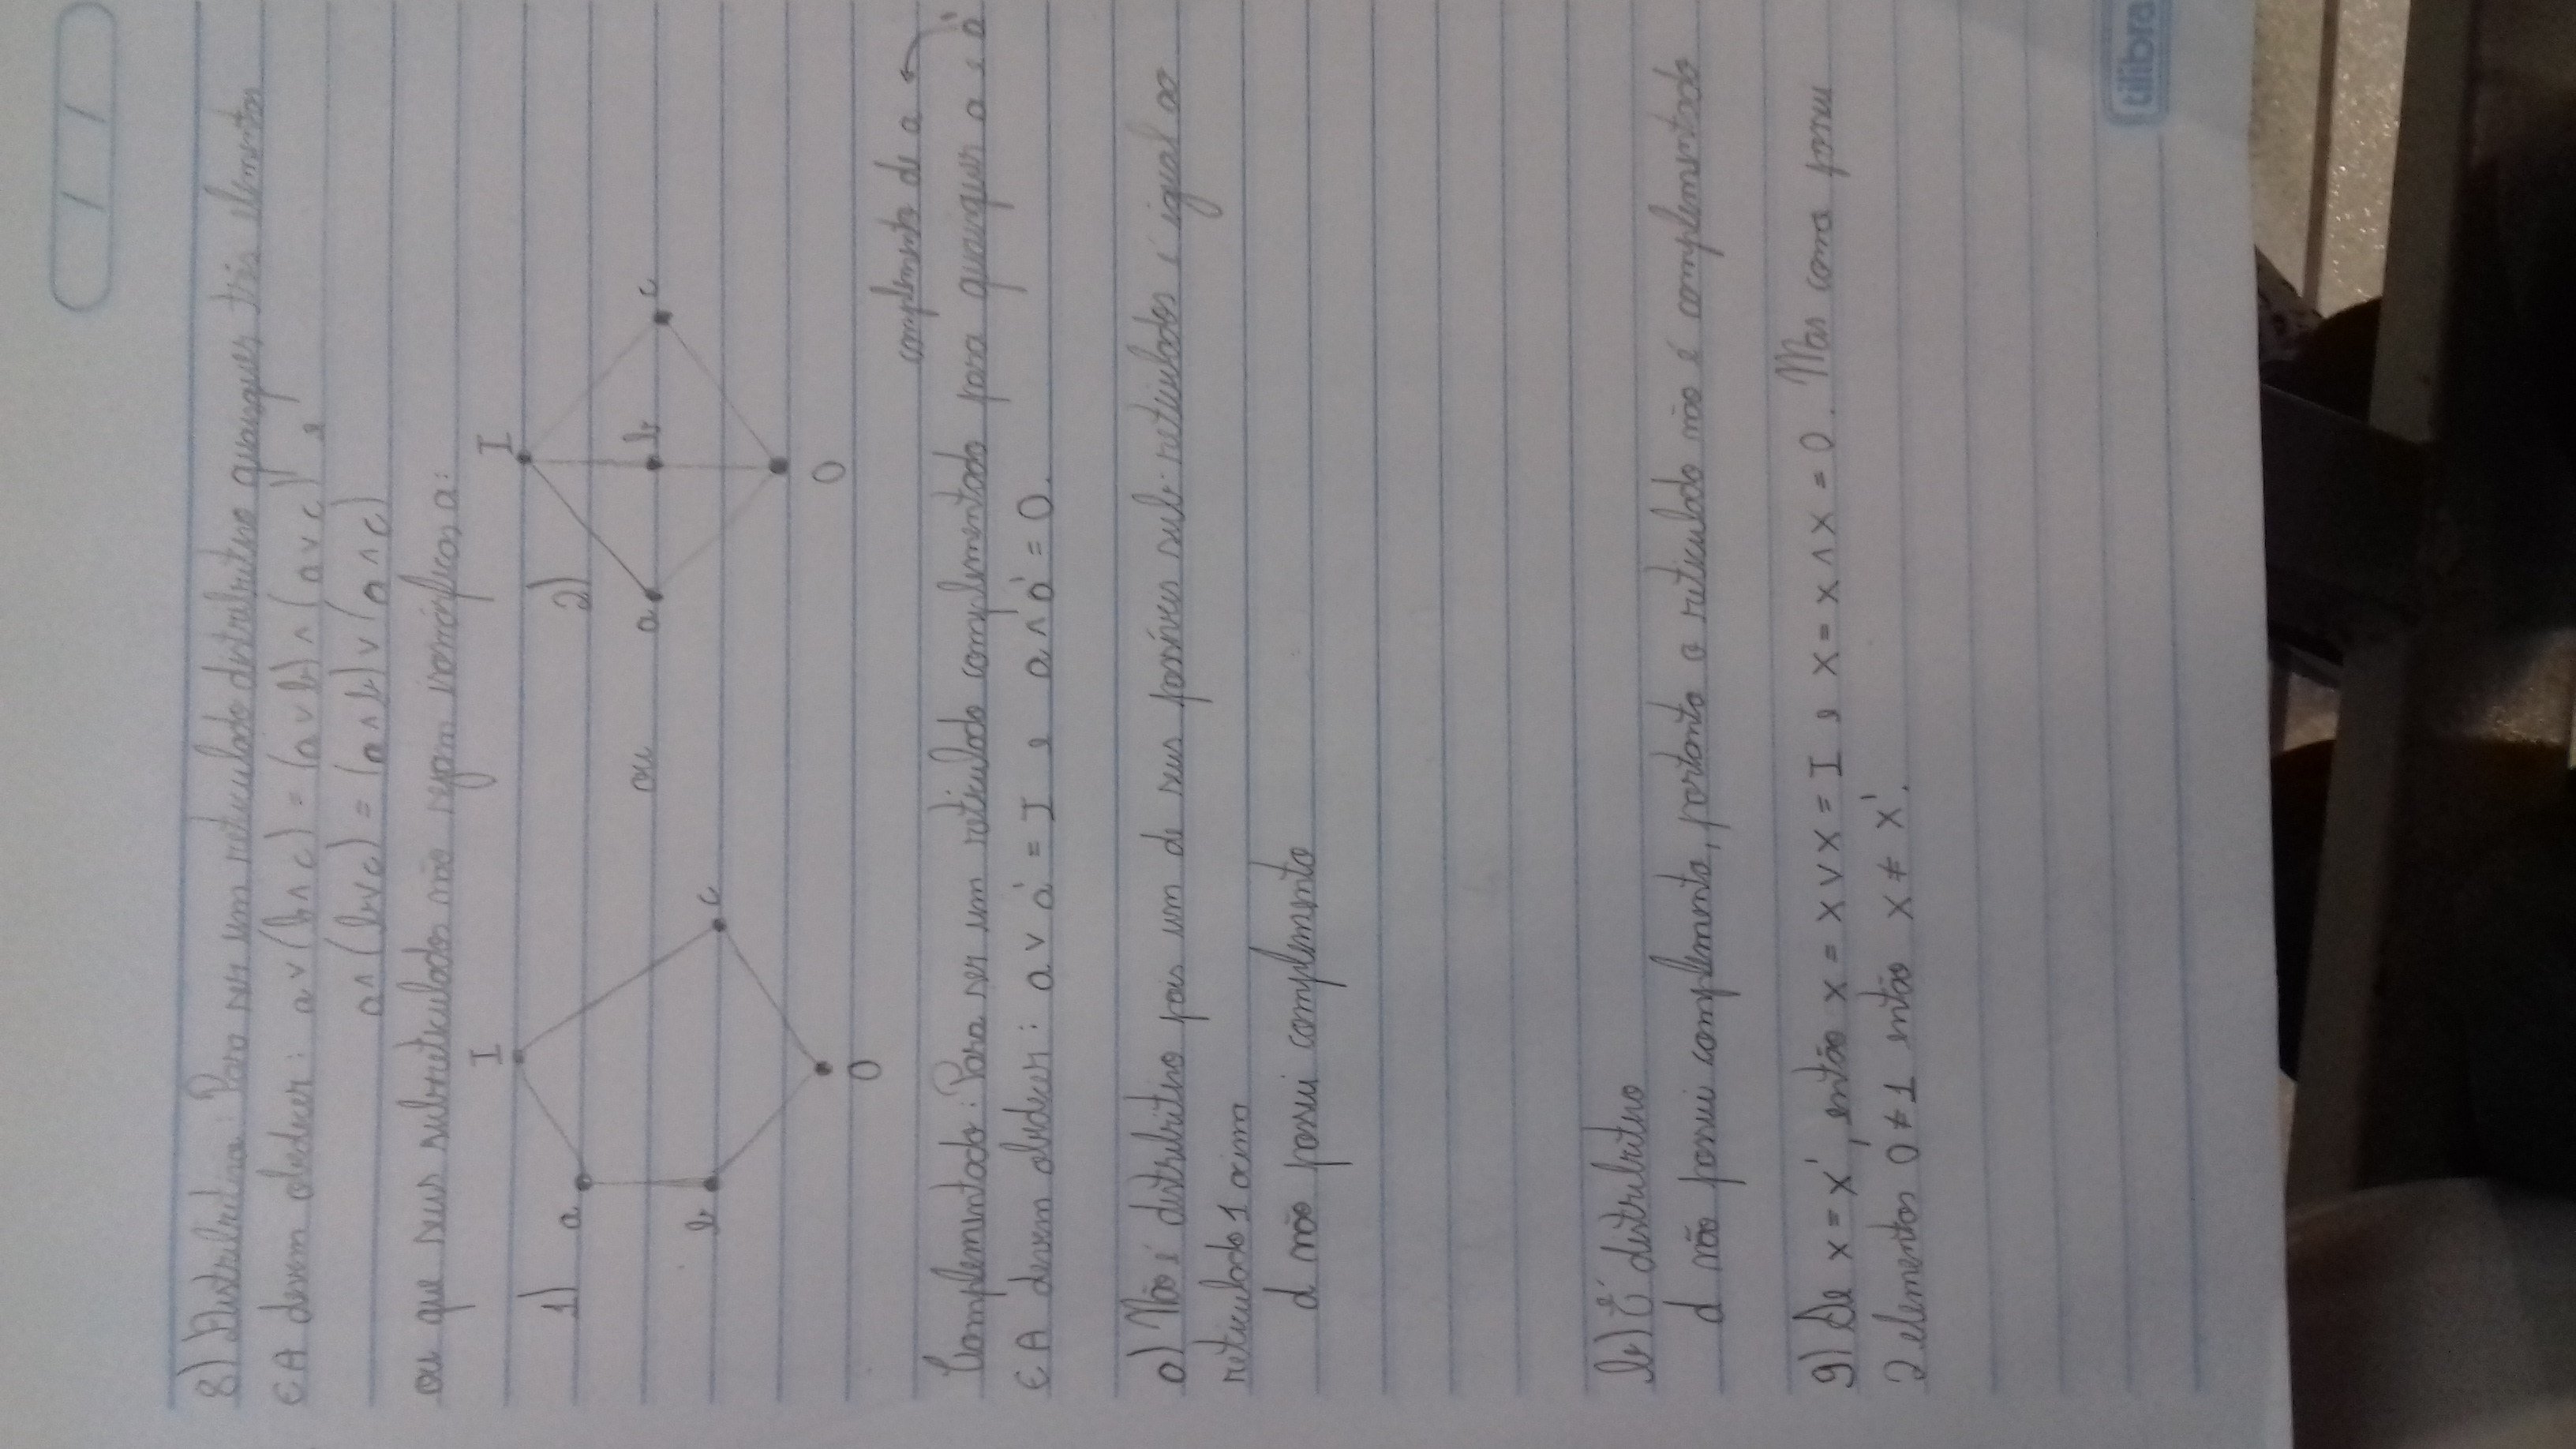 / /
8) Distributiva: Para ser um reticulado distributivo quaisquer três elementos
∈ A devem obedecer: a ∨ (b ∧ c) = (a ∨ b) ∧ (a ∨ c) e
a ∧ (b ∨ c) = (a ∧ b) ∨ (a ∧ c)
ou que seus subreticulados não sejam isomórficos a:
1) a I b c O
ou
2) I a b c O
complemento de a
Complementado: Para ser um reticulado complementado para quaisquer a e a'
∈ A devem obedecer: a ∨ a' = I e a ∧ a' = O.
a) Não é distributivo pois um de seus possíveis sub-reticulados é igual ao
reticulado 1 acima
d não possui complemento
b) É distributivo
d não possui complemento, portanto o reticulado não é complementado
9) Se x = x', então x = x ∨ x = I e x = x ∧ x = 0. Mas como possui
2 elementos 0 ≠ 1 então x ≠ x'.
tilibra